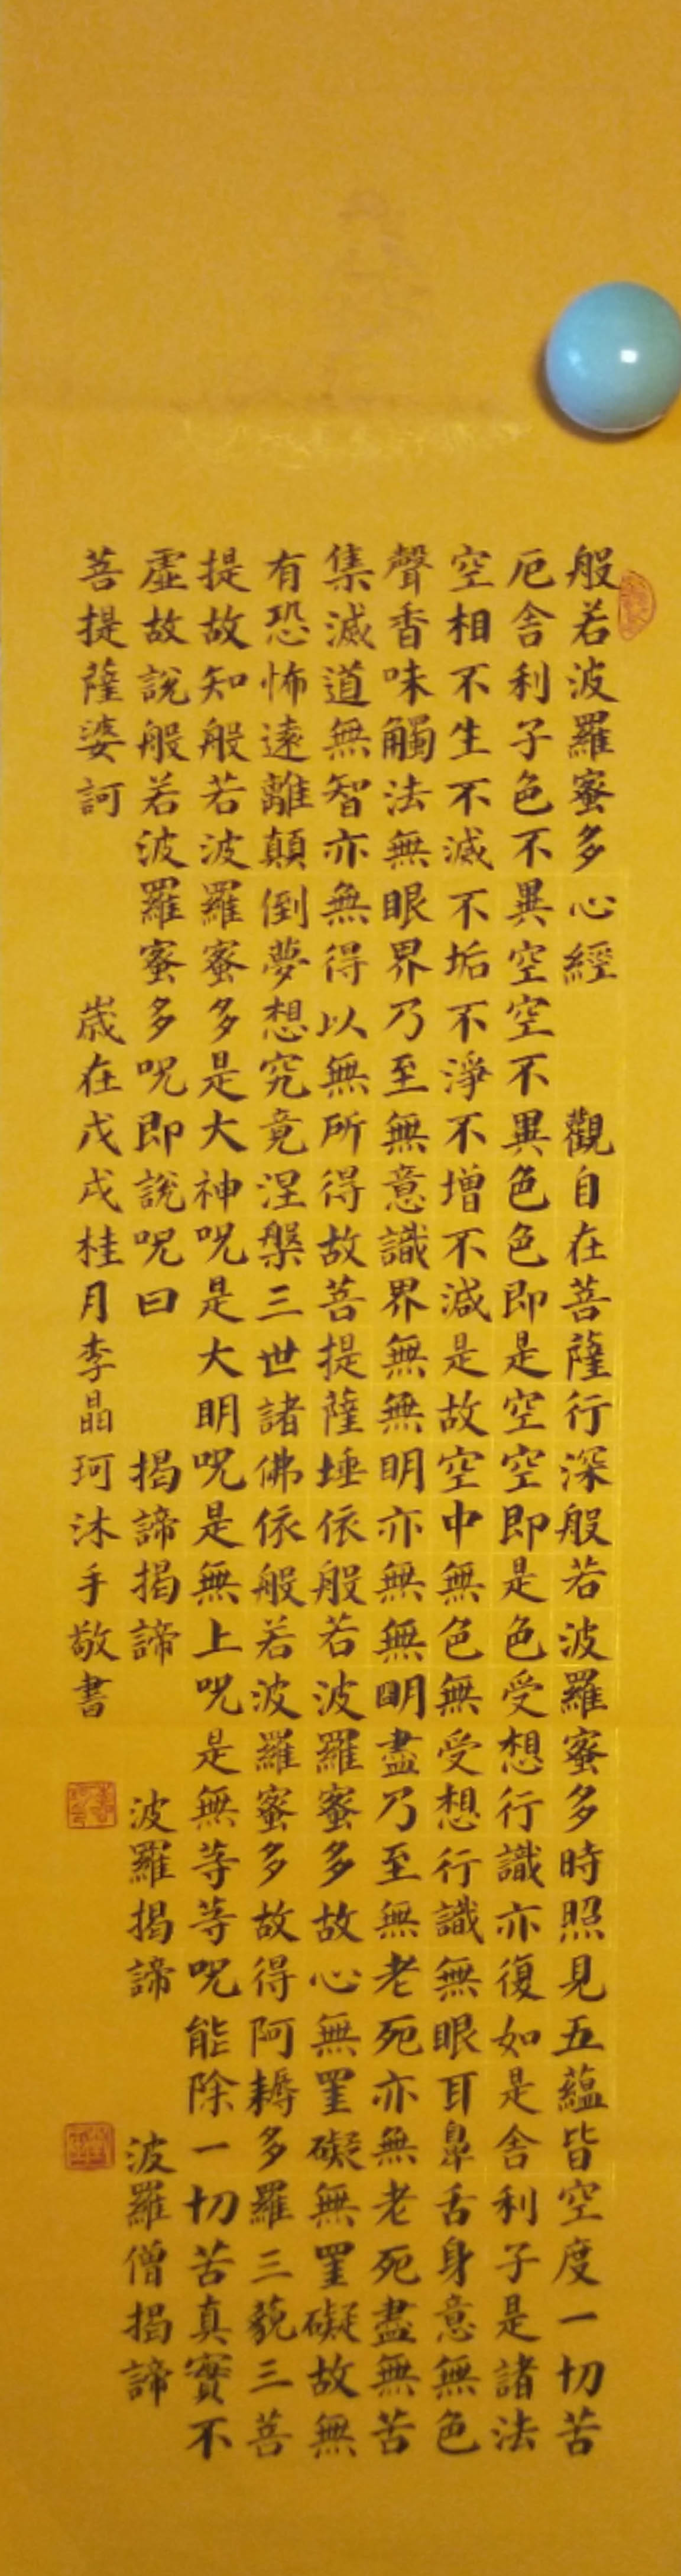 般若波羅蜜多心經 觀自在菩薩行深般若波羅蜜多時照見五蘊皆空度一切苦
厄舍利子色不異空空不異色色即是空空即是色受想行識亦復如是舍利子是諸法
空相不生不滅不垢不淨不增不減是故空中無色無受想行識無眼耳鼻舌身意無色
聲香味觸法無眼界乃至無意識界無無明亦無無明盡乃至無老死亦無老死盡無苦
集滅道無智亦無得以無所得故菩提薩埵依般若波羅蜜多故心無罣礙無罣礙故無
有恐怖遠離顛倒夢想究竟涅槃三世諸佛依般若波羅蜜多故得阿耨多羅三藐三菩
提故知般若波羅蜜多是大神呪是大明呪是無上呪是無等等呪能除一切苦真實不
虛故說般若波羅蜜多呪即說呪曰 揭諦揭諦 波羅揭諦 波羅僧揭諦
菩提薩婆訶 歲在戊戌桂月李晶珂沐手敬書